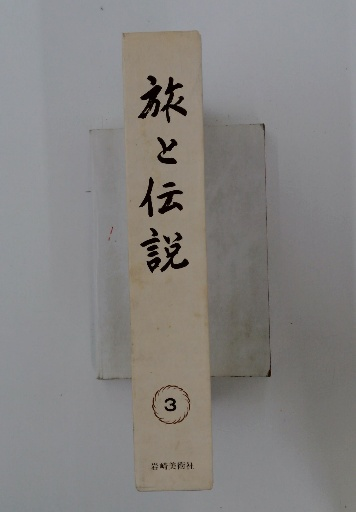 旅と伝説
3
岩崎美術社